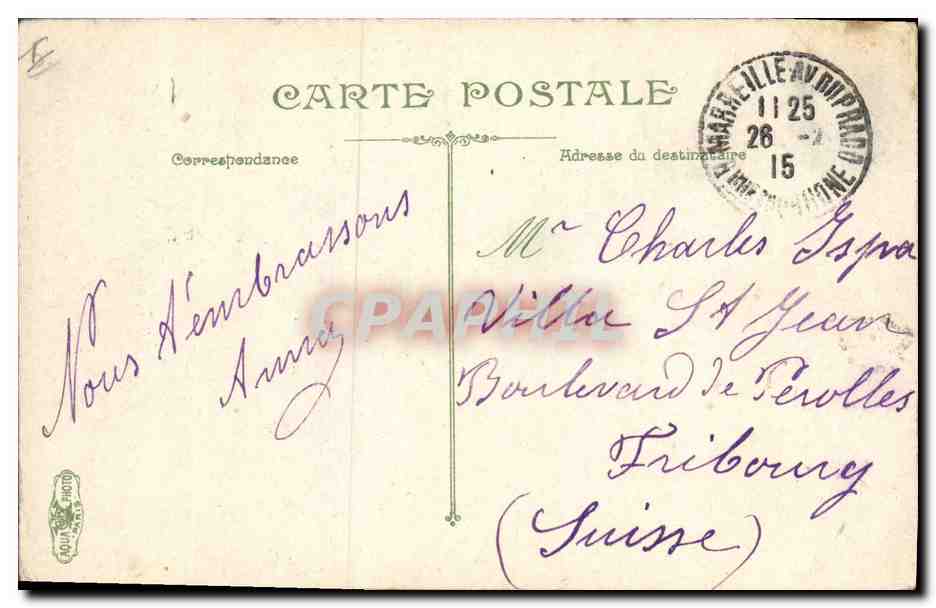 CARTE POSTALE
Correspondance
Adresse du destinataire
MARSEILLE-AV. DU PRADO
11 25
26
15
BCHES DU RHONE
Nous t'embrassons
Anna
Mr Charles Ispa
Villa St Jean
Boulevard de Perolles
Fribourg
(Suisse)
AQUA PHOTO
PARIS
CPAPHIL